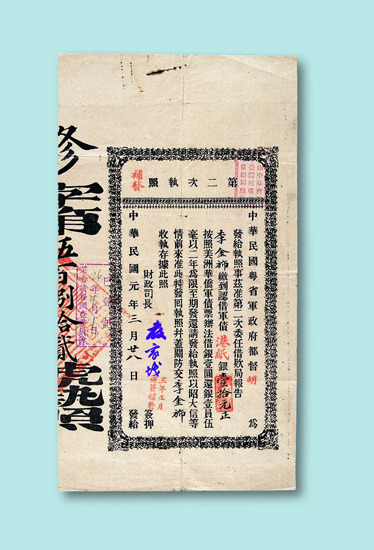 第二次執照
補發
中華民國粵省軍政府都督胡 為
發給執照事茲准第二次委任借款局報告
李金 繳到認借軍債港紙銀壹拾元正
按照美洲華僑軍債票辦法借銀壹圓還銀壹員伍
毫以二年為限至期發還請發給執照以昭大信等
情前來准此特發囘執照并蓋關防交李金
收執存據此照
財政司長 簽押
三年正月
中華民國元年三月廿八日發給
字第五百捌拾貳號